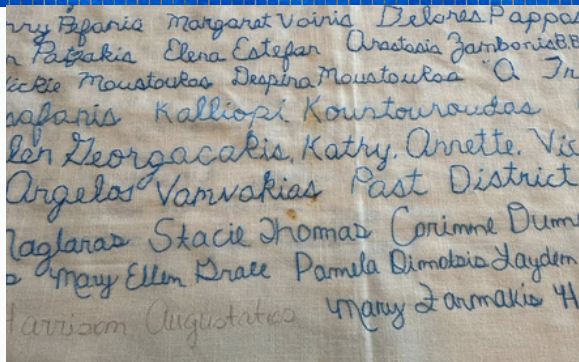 Margaret Vainis Delores Pappas
Patzakis Elena Estefan Anastasia Zambonis B.B
Vickie Moustoukas Despina Moustoukas "A In
safaris Kalliopi Koustouroudas
len Georgacakis, Kathy, Annette, Vic
Angelos Vamvakias Past District
Taglaras Stacie Thomas Corinne Dum
Mary Ellen Grace Pamela Dimotsis Layden
Harrison Augustatos Mary Farmakis H